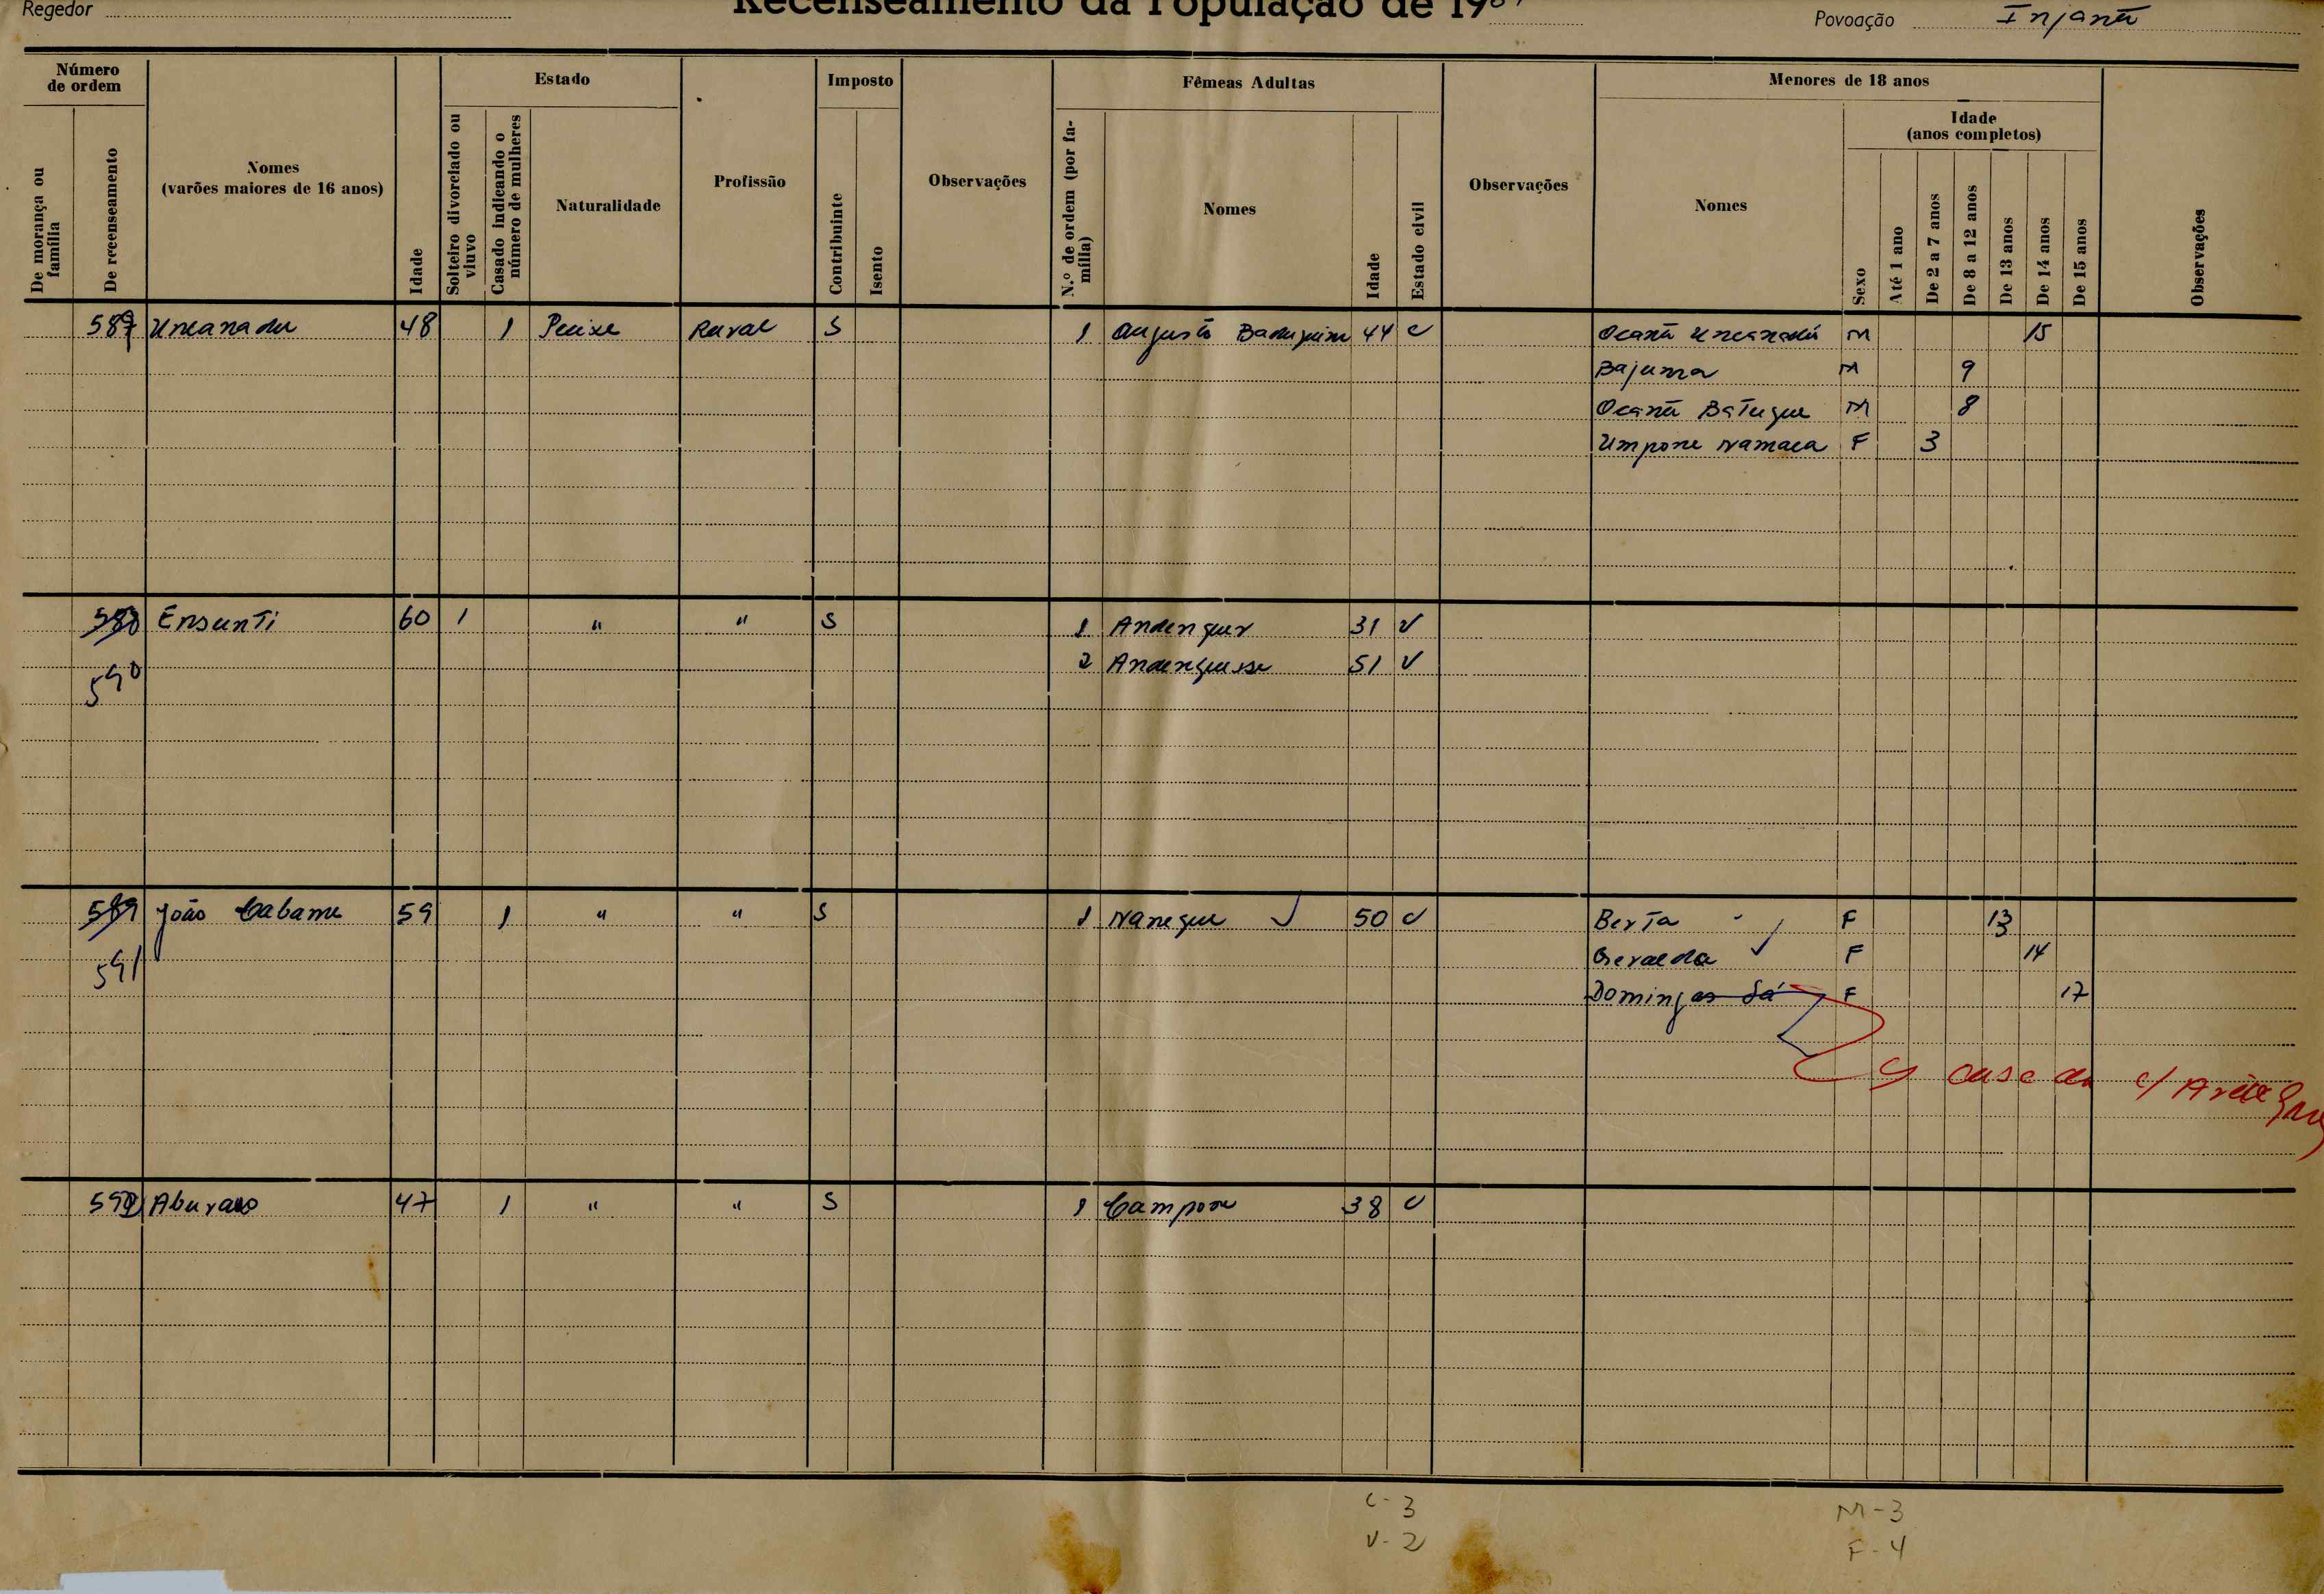 Regedor
Recenseamento da População de 19
Povoação Injanã
Número de ordem
De morança ou família
De recenseamento
Nomes (varões maiores de 16 anos)
Idade
Estado
Solteiro divorciado ou viuvo
Casado indicando o número de mulheres
Naturalidade
Profissão
Imposto
Contribuinte
Isento
Observações
Fêmeas Adultas
N.º de ordem (por família)
Nomes
Idade
Estado civil
Observações
Menores de 18 anos
Nomes
Sexo
Idade (anos completos)
Até 1 ano
De 2 a 7 anos
De 8 a 12 anos
De 13 anos
De 14 anos
De 15 anos
Observações
589 Uncanadu 48 1 Pecixe Rural S 1 Augusta 44 C Ocanã Uncanadú M 15
Bajuma M 9
Ocanã Batuque M 8
Umpone Namaca F 3
588 Ensunti 60 1 " " S 1 31 V
590 2 51 V
589 João Cabame 59 1 " " S 1 Nanegue 50 C Berta F 13
591 Geralda F 14
Domingas Sá F 17
casada c/
592 47 1 " " S 1 Campone 38 C
C-3 M-3
V-2 F-4